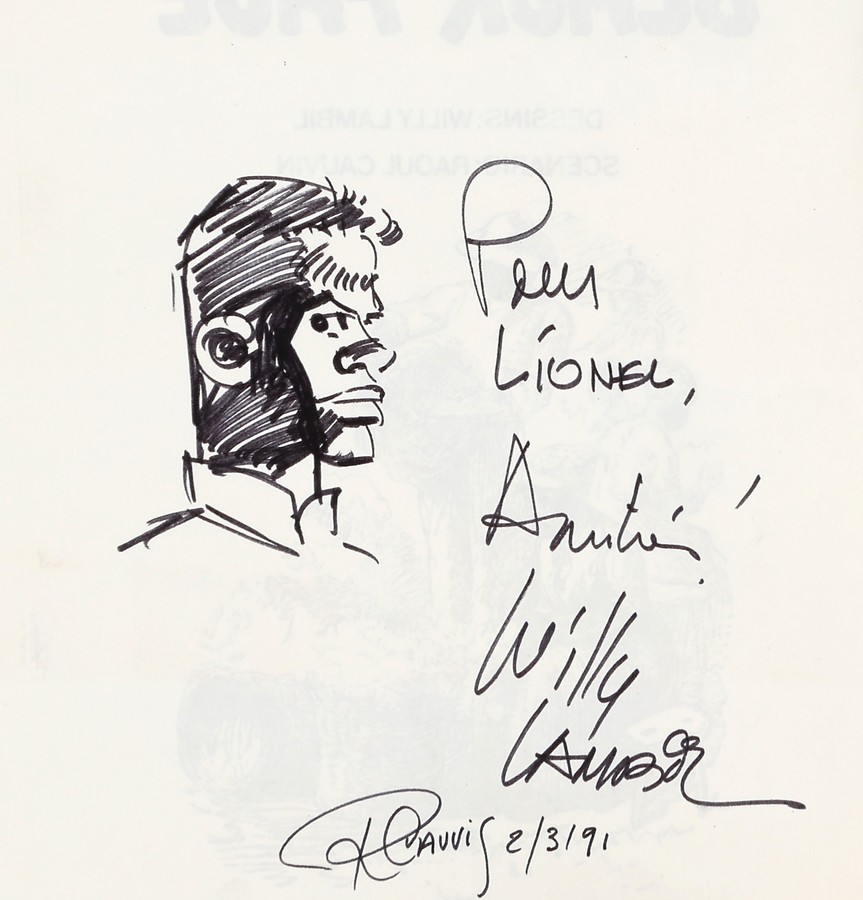 BLACK FACE
DESSINS: WILLY LAMBIL
SCENARIO: RAOUL CAUVIN
Pour
Lionel,
Amitiés!
Willy
Lambil
R Cauvin 2/3/91